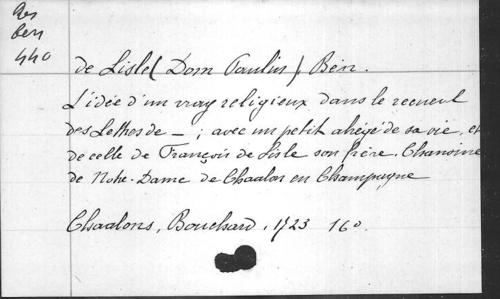 Res
ben
440
de Lisle (Dom Paulin), Bén.
L'idée d'un vray religieux dans le recueul
des Lettres de — ; avec un petit abégé de sa vie, et
de celle de François de Lisle son frère. Chanoine
de Notre-Dame de Chaalon en Champagne
Chaalons, Bouchard, 1723 16o.